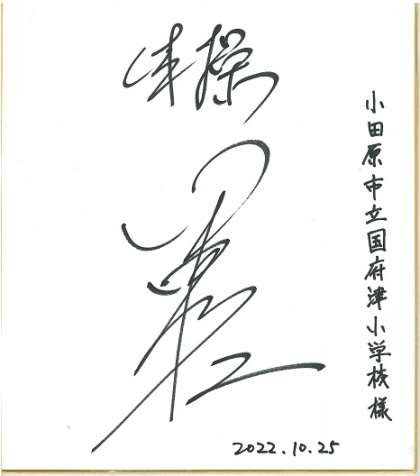 体操
小田原市立国府津小学校様
2022.10.25